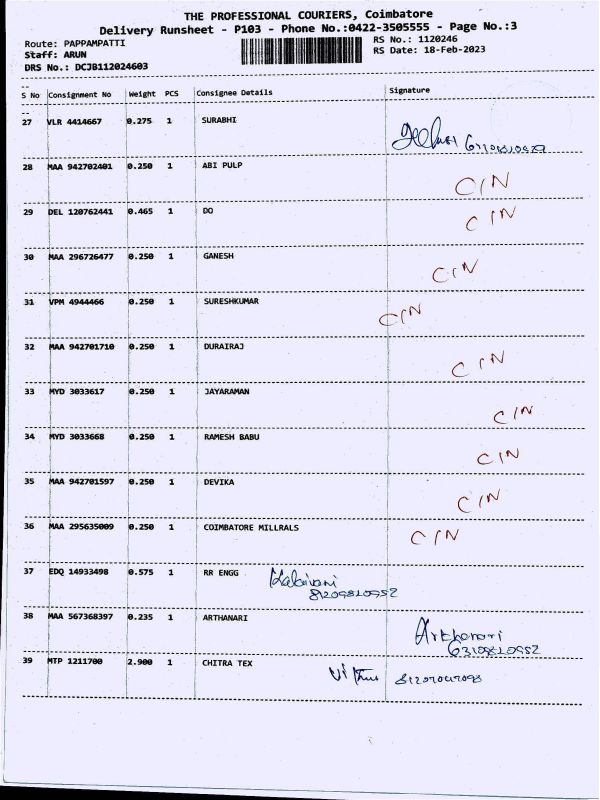 THE PROFESSIONAL COURIERS, Coimbatore
Delivery Runsheet - P103 - Phone No.:0422-3505555 - Page No.:3
Route: PAPPAMPATTI
Staff: ARUN
DRS No.: DCJB112024603
RS No.: 1120246
RS Date: 18-Feb-2023
S No Consignment No Weight PCS Consignee Details Signature
27 VLR 4414667 0.275 1 SURABHI
28 MAA 942702401 0.250 1 ABI PULP C/N
29 DEL 120762441 0.465 1 DO C/N
30 MAA 296726477 0.250 1 GANESH C/N
31 VPM 4944466 0.250 1 SURESHKUMAR C/N
32 MAA 942701710 0.250 1 DURAIRAJ C/N
33 MYD 3033617 0.250 1 JAYARAMAN C/N
34 MYD 3033668 0.250 1 RAMESH BABU C/N
35 MAA 942701597 0.250 1 DEVIKA C/N
36 MAA 295635009 0.250 1 COIMBATORE MILLRALS C/N
37 EDQ 14933498 0.575 1 RR ENGG
38 MAA 567368397 0.235 1 ARTHANARI Arthanari
39 MTP 1211700 2.900 1 CHITRA TEX